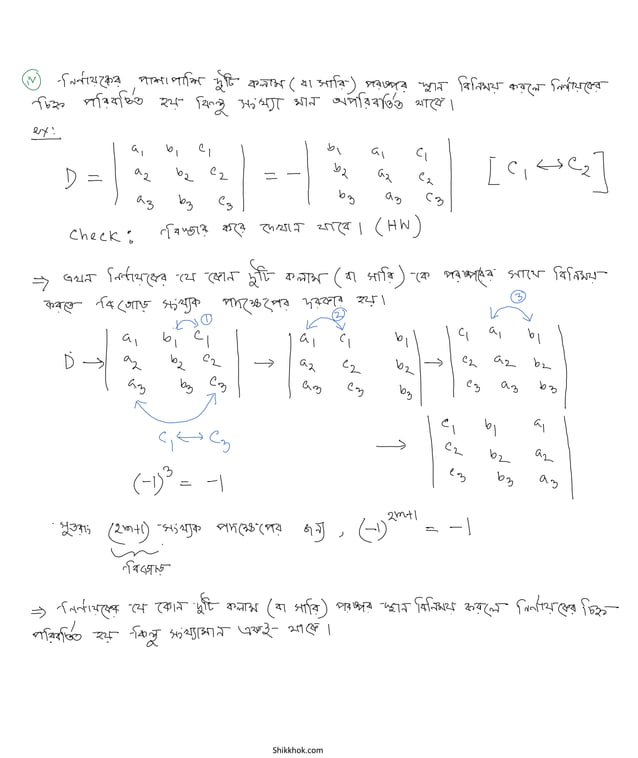 (iv) নির্ণায়কের পাশাপাশি দুটি কলাম (বা সারি) পরস্পর স্থান বিনিময় করলে নির্ণায়কের
চিহ্ন পরিবর্তিত হয় কিন্তু সংখ্যা মান অপরিবর্তিত থাকে।
ex:
D = | a₁ b₁ c₁ | = - | b₁ a₁ c₁ | [C₁ ↔ C₂]
| a₂ b₂ c₂ | | b₂ a₂ c₂ |
| a₃ b₃ c₃ | | b₃ a₃ c₃ |
Check: বিস্তার করে দেখান যাবে। (HW)
⇒ এখন নির্ণায়কের যে কোন দুটি কলাম (বা সারি) -কে পরস্পরের সাথে বিনিময়
করতে বিজোড় সংখ্যক পদক্ষেপের দরকার হয়।
① ② ③
D → | a₁ b₁ c₁ | → | a₁ c₁ b₁ | → | c₁ a₁ b₁ |
| a₂ b₂ c₂ | | a₂ c₂ b₂ | | c₂ a₂ b₂ |
| a₃ b₃ c₃ | | a₃ c₃ b₃ | | c₃ a₃ b₃ |
C₁ ↔ C₃
→ | c₁ b₁ a₁ |
| c₂ b₂ a₂ |
| c₃ b₃ a₃ |
(-1)³ = -1
সুতরাং (2m+1) সংখ্যক পদক্ষেপের জন্য, (-1)²ᵐ⁺¹ = -1
বিজোড়
⇒ নির্ণায়কের যে কোন দুটি কলাম (বা সারি) পরস্পর স্থান বিনিময় করলে নির্ণায়কের চিহ্ন
পরিবর্তিত হয় কিন্তু সংখ্যামান একই থাকে।
Shikkhok.com